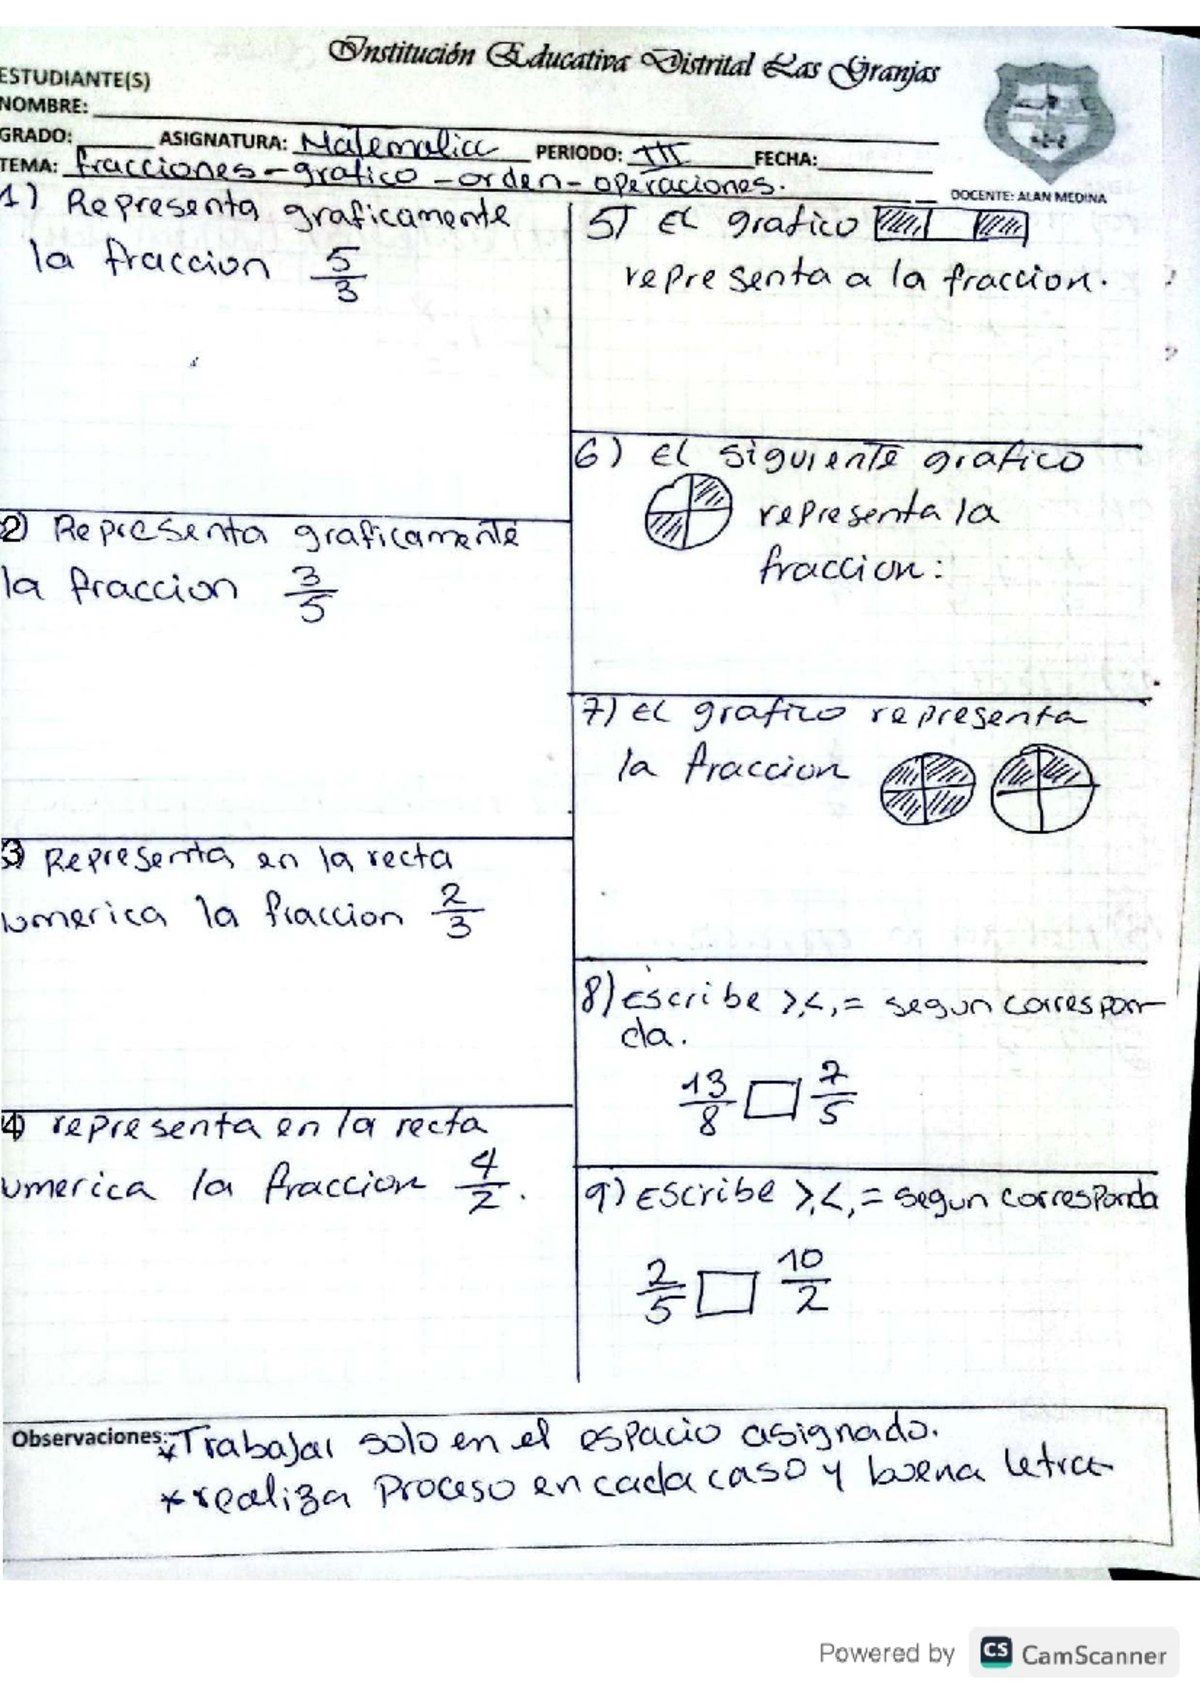 Institución Educativa Distrital Las Granjas
ESTUDIANTE(S)
NOMBRE:
GRADO: ASIGNATURA: Matematica PERIODO: III FECHA:
TEMA: fracciones-grafico-orden-operaciones.
DOCENTE: ALAN MEDINA
1) Representa graficamente
la fraccion 5/3
2) Representa graficamente
la fraccion 3/5
3) Representa en la recta
umerica la fraccion 2/3
4) representa en la recta
umerica la fraccion 4/2.
5) El grafico
representa a la fraccion.
6) El siguiente grafico
representa la
fraccion:
7) El grafico representa
la fraccion
8) Escribe >,<,= segun correspon-
da.
13/8 □ 7/5
9) Escribe >,<,= segun corresponda
2/5 □ 10/2
Observaciones: *Trabajar solo en el espacio asignado.
*realiza Proceso en cada caso y buena letra
Powered by CS CamScanner